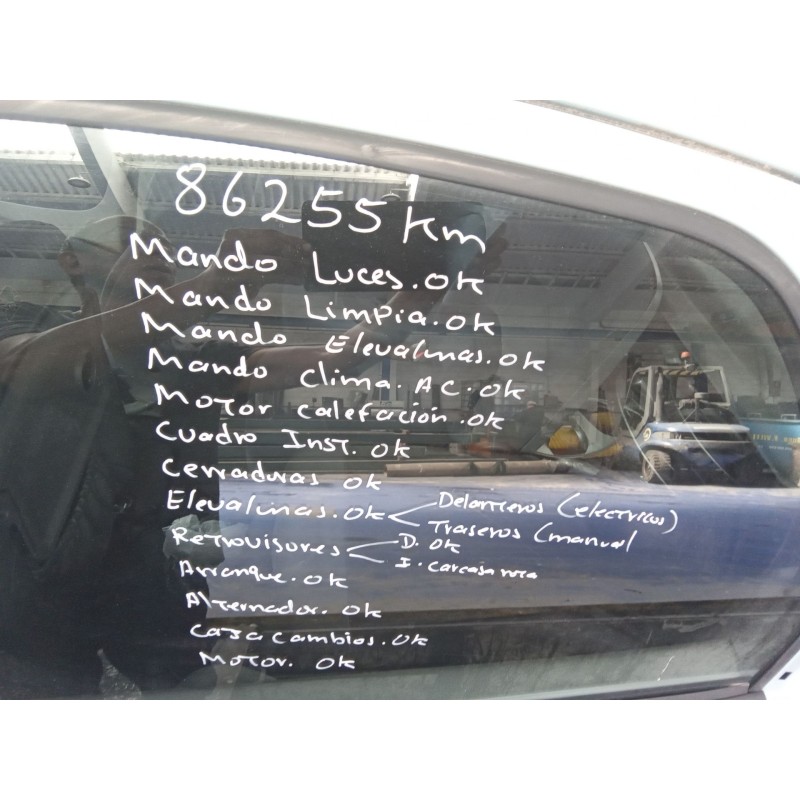 86255 km
Mando Luces. OK
Mando Limpia. OK
Mando Elevalinas. OK
Mando Clima. AC. OK
Motor Calefación. OK
Cuadro Inst. OK
Cerraduras OK
Elevalinas. OK
Delanteros (electricos)
Traseros (manual
Retrovisores
D. OK
I. carcasa rota
Arranque. OK
Alternador. OK
Caja Cambios. OK
Motor. OK